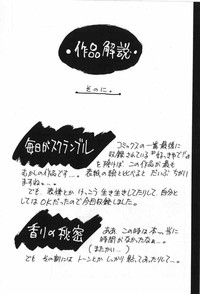 ・作品解説・
その二。
毎日がスクランブル
コミックスの一番最後に
収録されている“好ききで!”
を除けば、この作品が最も
むかしの作品です…。表紙の絵と比べると だいぶ ちがい
ますねぇ。。
でも、表情とか けっこう 生き生きしてたりして、自分と
してはOKだったので今回収録しました。
香りの秘密
ああ、この時は本っ当に
時間がなかったなぁ…。
(またかい…)
でも、その割には トーンとか しっかり 貼ってあったりして…。